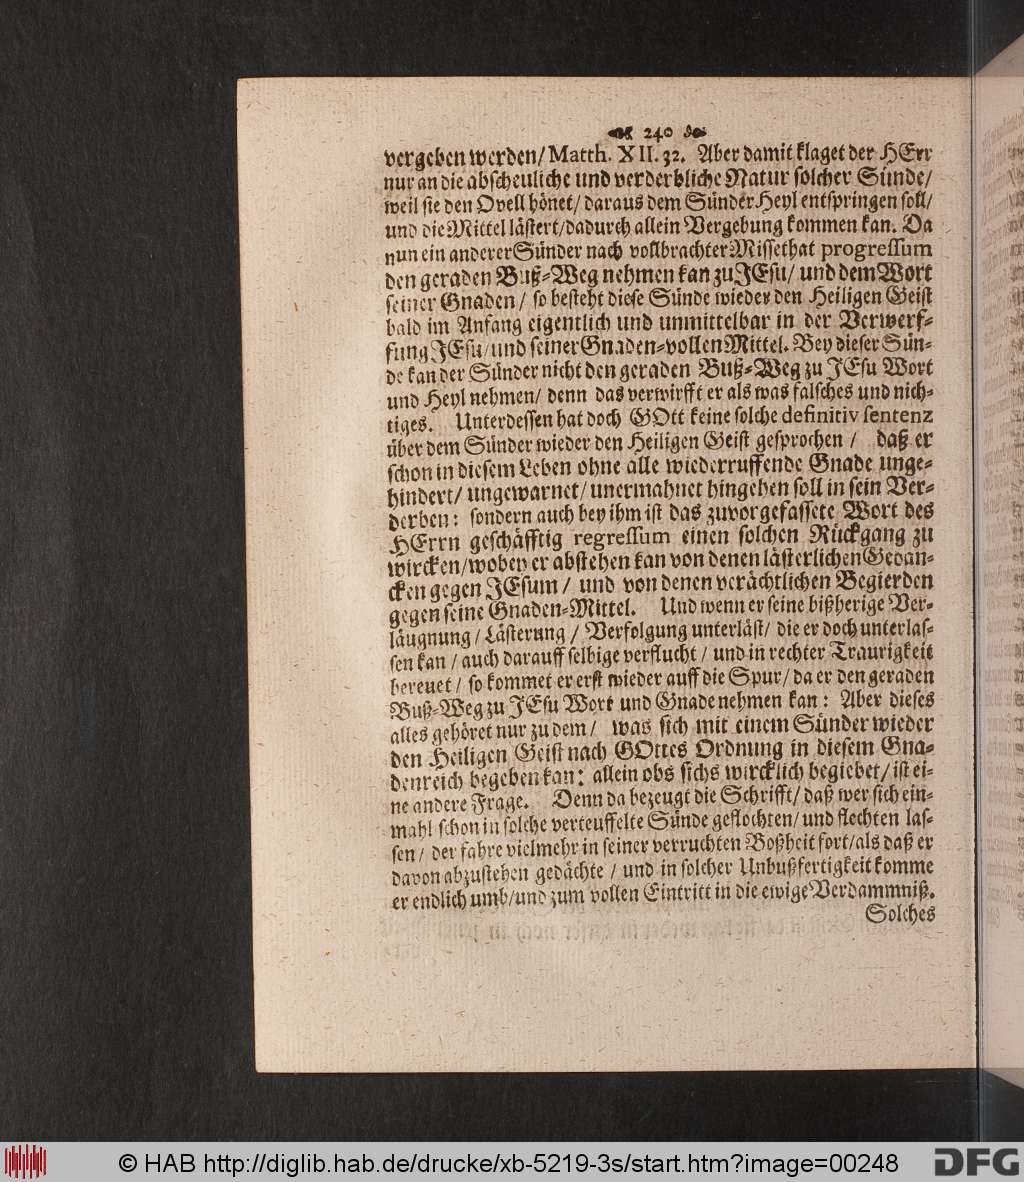 240
vergeben werden/ Matth. XII. 32. Aber damit klaget der HErr
nur an die abscheuliche und verderbliche Natur solcher Sünde/
weil sie den Qvell hönet/ daraus dem Sünder Heyl entspringen soll/
und die Mittel lästert/ dadurch allein Vergebung kommen kan. Da
nun ein anderer Sünder nach vollbrachter Missethat progressum
den geraden Buß-Weg nehmen kan zu JEsu/ und dem Wort
seiner Gnaden/ so besteht diese Sünde wieder den Heiligen Geist
bald im Anfang eigentlich und unmittelbar in der Verwerf-
fung JEsu/ und seiner Gnaden-vollen Mittel. Bey dieser Sün-
de kan der Sünder nicht den geraden Buß-Weg zu JEsu Wort
und Heyl nehmen/ denn das verwirfft er als was falsches und nich-
tiges. Unterdessen hat doch GOtt keine solche definitiv sentenz
über dem Sünder wieder den Heiligen Geist gesprochen/ daß er
schon in diesem Leben ohne alle wiederruffende Gnade unge-
hindert/ ungewarnet/ unermahnet hingehen soll in sein Ver-
derben: sondern auch bey ihm ist das zuvorgefassete Wort des
HErrn geschäfftig regressum einen solchen Rückgang zu
wircken/ wobey er abstehen kan von denen lästerlichen Gedan-
cken gegen JEsum/ und von denen verächtlichen Begierden
gegen seine Gnaden-Mittel. Und wenn er seine bißherige Ver-
läugnung/ Lästerung/ Verfolgung unterläst/ die er doch unterlas-
sen kan/ auch darauff selbige verflucht/ und in rechter Traurigkeit
bereuet/ so kommet er erst wieder auff die Spur/ da er den geraden
Buß-Weg zu JEsu Wort und Gnade nehmen kan: Aber dieses
alles gehöret nur zu dem/ was sich mit einem Sünder wieder
den Heiligen Geist nach GOttes Ordnung in diesem Gna-
denreich begeben kan: allein obs sichs wircklich begiebet/ ist ei-
ne andere Frage. Denn da bezeugt die Schrifft/ daß wer sich ein-
mahl schon in solche verteuffelte Sünde geflochten/ und flechten las-
sen/ der fahre vielmehr in seiner verruchten Boßheit fort/ als daß er
davon abzustehen gedächte/ und in solcher Unbußfertigkeit komme
er endlich umb/ und zum vollen Eintritt in die ewige Verdammniß.
Solches
© HAB http://diglib.hab.de/drucke/xb-5219-3s/start.htm?image=00248
DFG